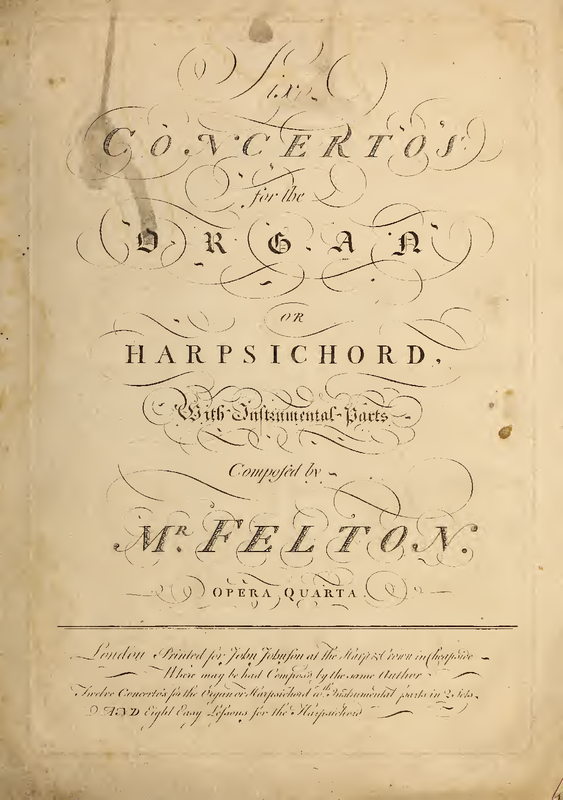 Six
CONCERTOS
for the
ORGAN
OR
HARPSICHORD,
With Instrumental Parts
Compoſed by
MR. FELTON.
OPERA QUARTA.
London Printed for John Johnſon at the Harp & Crown in Cheapſide
Where may be had Compos'd by the same Author
Twelve Concerto's for the Organ or Harpsichord wth. Instrumental parts in 2 Sets.
AND Eight Easy Leſsons for the Harpsichord